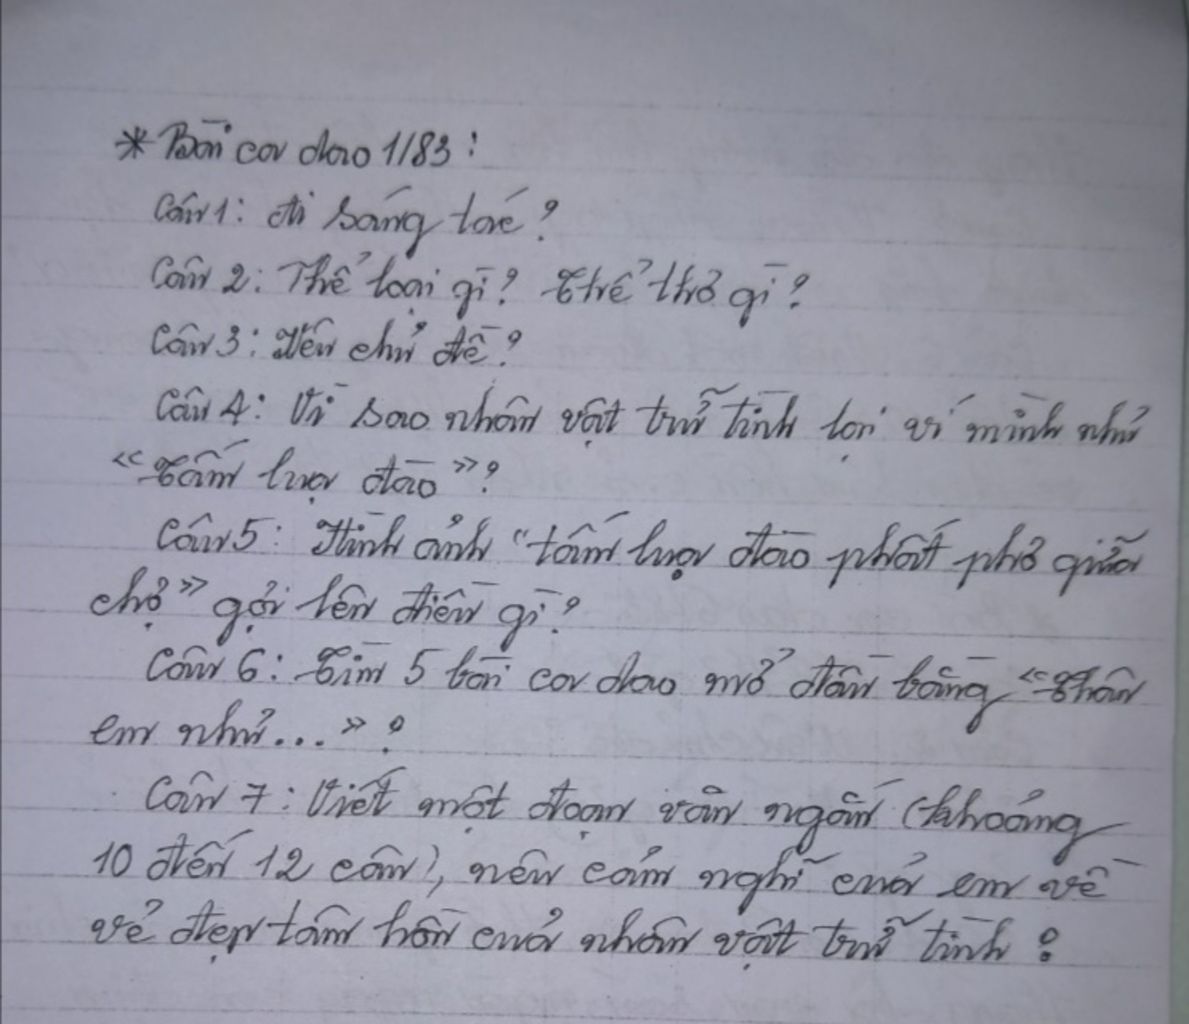 * Bài ca dao 1/83:
Câu 1: Ai sáng tác?
Câu 2: Thể loại gì? Thể thơ gì?
Câu 3: Nêu chủ đề?
Câu 4: Vì sao nhân vật trữ tình lại ví mình như
"Tấm lụa đào"?
Câu 5: Hình ảnh "tấm lụa đào phất phơ giữa
chợ" gợi lên điều gì?
Câu 6: Tìm 5 bài ca dao mở đầu bằng "Thân
em như..."?
Câu 7: Viết một đoạn văn ngắn (khoảng
10 đến 12 câu), nêu cảm nghĩ của em về
vẻ đẹp tâm hồn của nhân vật trữ tình?